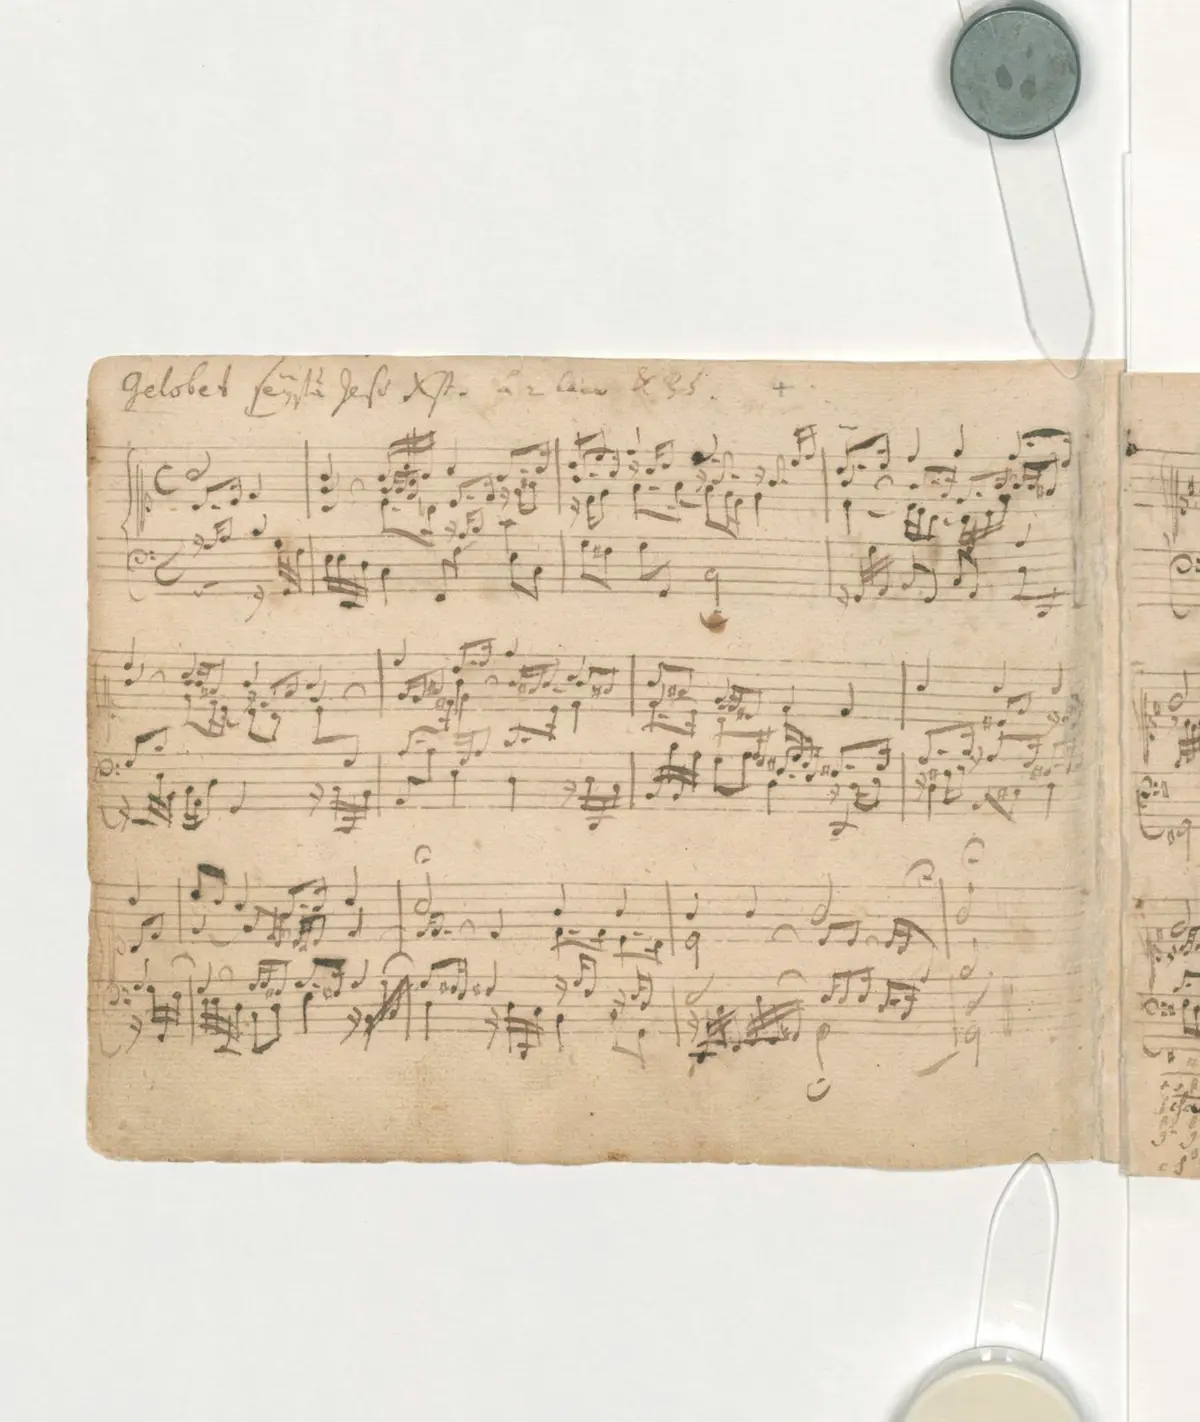 Gelobet seystu Jesu Xst. à 2 Clav. & Ped.